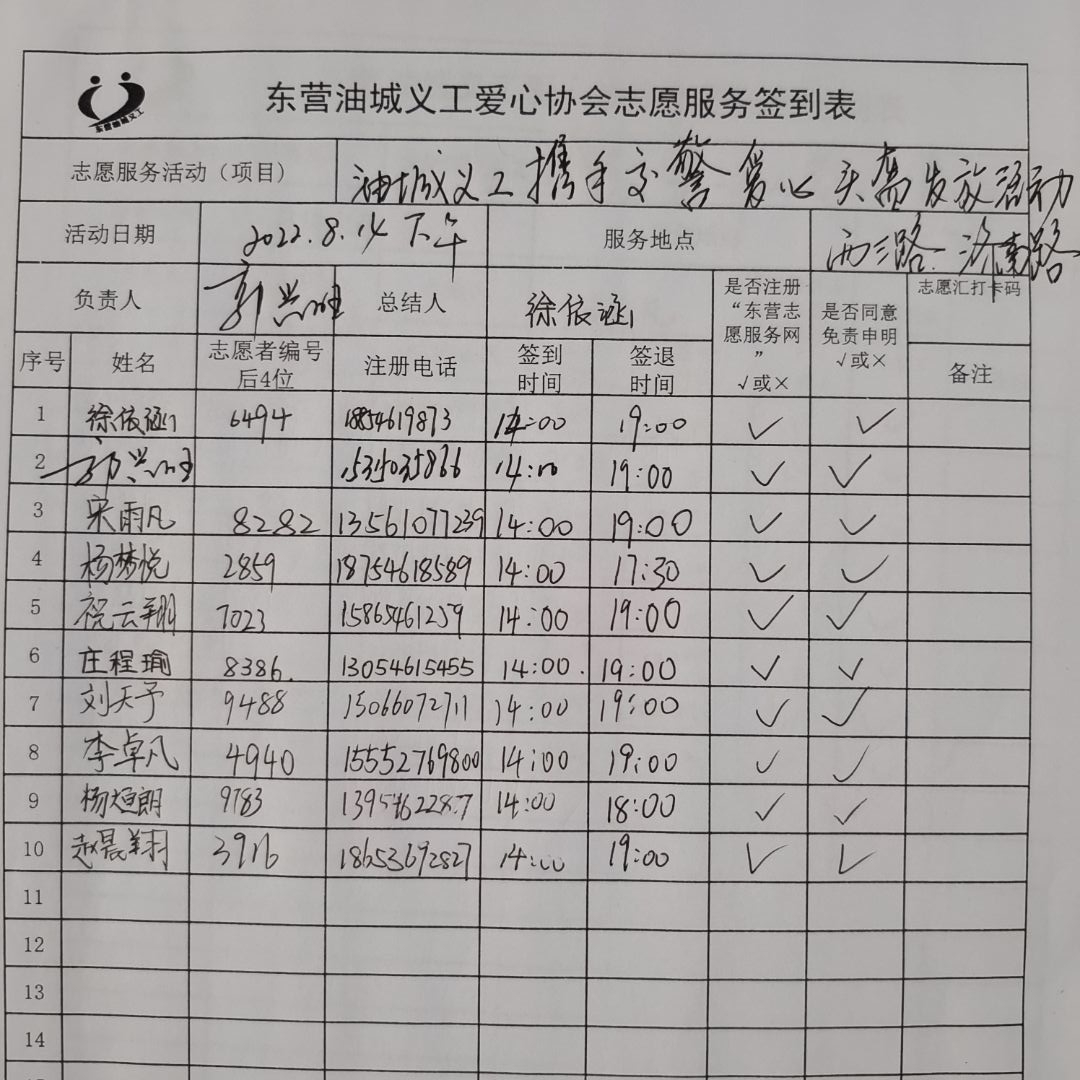 东营油城义工
东营油城义工爱心协会志愿服务签到表
志愿服务活动（项目） 油城义工携手交警爱心头盔发放活动
活动日期 2022.8.14 下午 服务地点 西三路 济南路
负责人 郭兴旺 总结人 徐依涵 是否注册“东营志愿服务网” √或× 是否同意免责申明 √或× 志愿汇打卡码
序号 姓名 志愿者编号后4位 注册电话 签到时间 签退时间 备注
1 徐依涵 6494 1854619873 14:00 19:00 ✓ ✓
2 郭兴旺 14:00 19:00 ✓ ✓
3 宋雨凡 8282 13561077239 14:00 19:00 ✓ ✓
4 杨梦悦 2859 18754618589 14:00 17:30 ✓ ✓
5 祝云翔 7023 15865461259 14:00 19:00 ✓ ✓
6 庄程瑜 8386. 13054615455 14:00. 19:00 ✓ ✓
7 刘天予 9488 15066072711 14:00 19:00 ✓ ✓
8 李卓凡 4940 15552769800 14:00 19:00 ✓ ✓
9 杨烜朗 9783 13954622817 14:00 18:00 ✓ ✓
10 赵晟翔 3916 18653692827 14:00 19:00 ✓ ✓
11
12
13
14